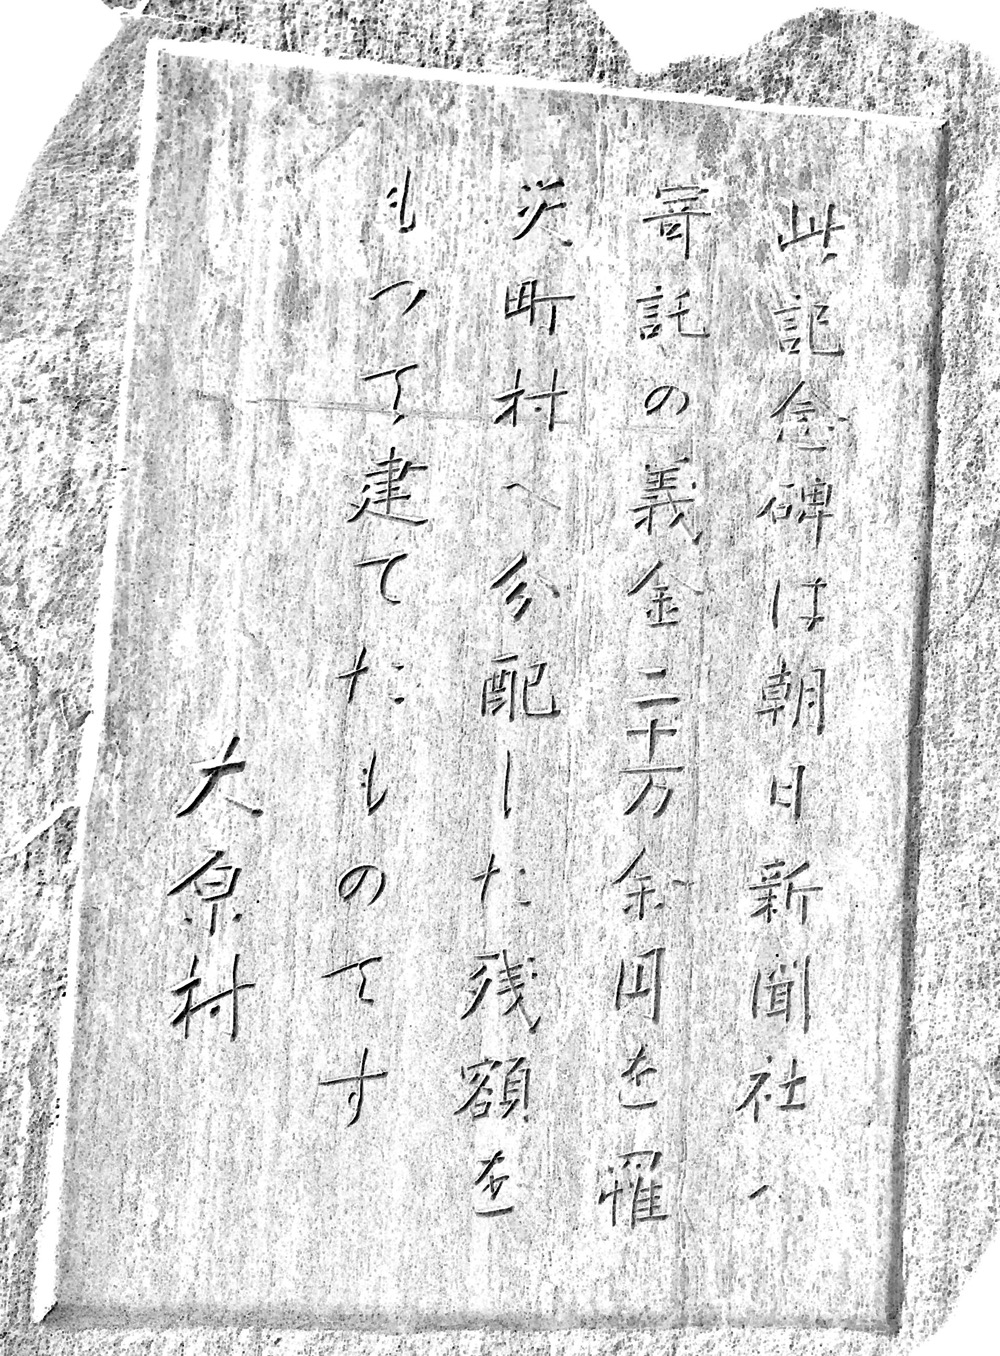 此記念碑は朝日新聞社へ
寄託の義金二十万余円を罹
災町村へ分配した残額を
もつて建てたものてす
大原村